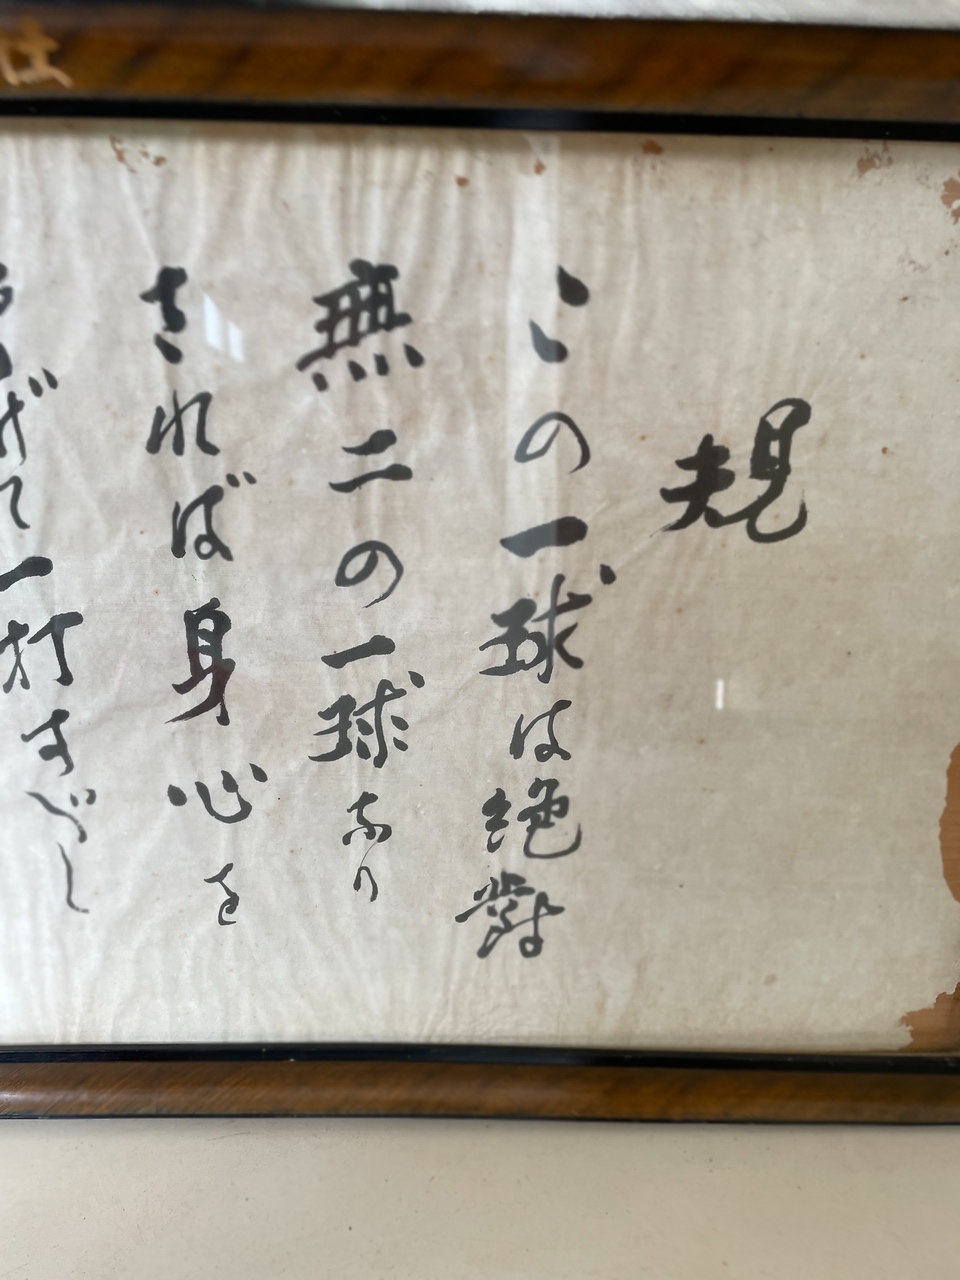 規
この一球は絶對
無二の一球なり
されば身心を
げて一打すべし